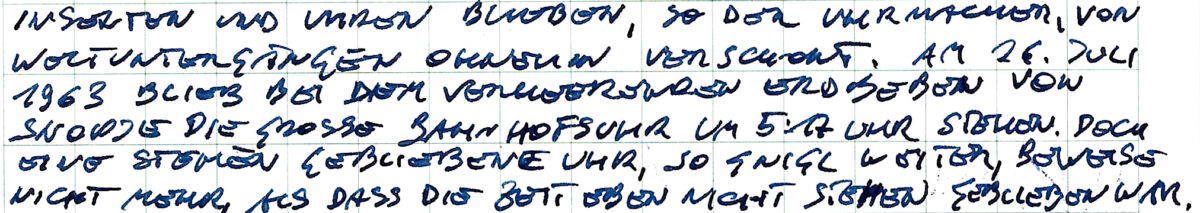 INSEKTEN UND UHREN BLIEBEN, SO DER UHRMACHER, VON
WELTUNTERGÄNGEN OHNEHIN VERSCHONT. AM 26. JULI
1963 BLIEB BEI DEM VERHEERENDEN ERDBEBEN VON
SKOPJE DIE GROSSE BAHNHOFSUHR UM 5:17 UHR STEHEN. DOCH
EINE STEHEN GEBLIEBENE UHR, SO GNIGL WEITER, BEWEISE
NICHT MEHR, ALS DASS DIE ZEIT EBEN NICHT STEHEN GEBLIEBEN WAR.